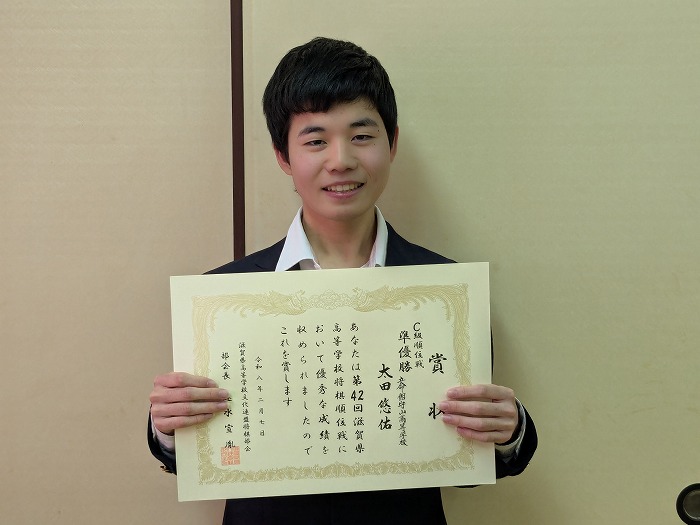 賞状
C級順位戦
準優勝 立命館守山高等学校
太田悠佑
あなたは第42回滋賀県
高等学校将棋順位戦に
おいて優秀な成績を
収められましたので
これを賞します
令和八年二月七日
滋賀県高等学校文化連盟将棋部会
部会長
永宣胤